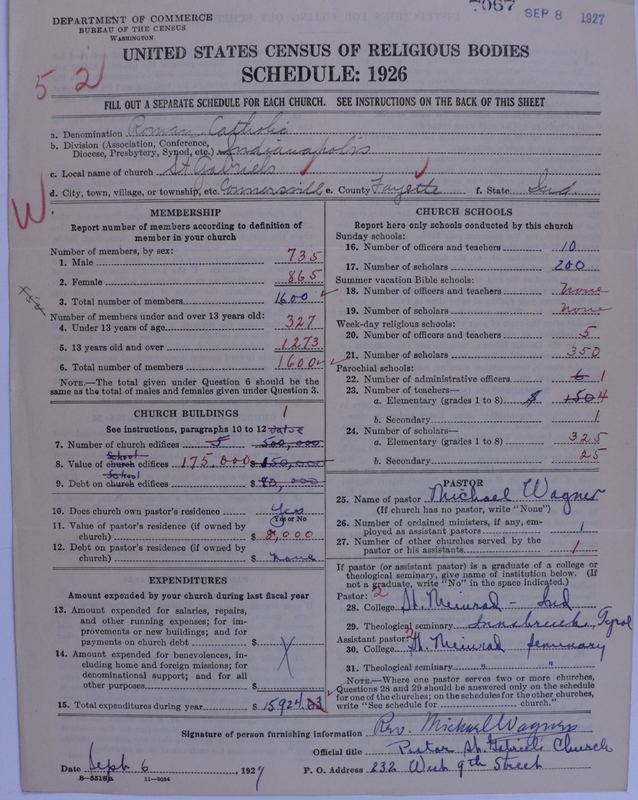 DEPARTMENT OF COMMERCE
BUREAU OF THE CENSUS
WASHINGTON
7067 SEP 8 1927
UNITED STATES CENSUS OF RELIGIOUS BODIES
SCHEDULE: 1926
52
FILL OUT A SEPARATE SCHEDULE FOR EACH CHURCH. SEE INSTRUCTIONS ON THE BACK OF THIS SHEET
a. Denomination Roman Catholic
b. Division (Association, Conference, Diocese, Presbytery, Synod, etc.) Indianapolis
c. Local name of church St Gabriels
d. City, town, village, or township, etc. Connersville e. County Fayette f. State Ind.
W.
MEMBERSHIP
Report number of members according to definition of member in your church
Number of members, by sex:
1. Male 735
2. Female 865
3. Total number of members 1600
Number of members under and over 13 years old:
4. Under 13 years of age 327
5. 13 years old and over 1273
6. Total number of members 1600
NOTE.—The total given under Question 6 should be the same as the total of males and females given under Question 3.
CHURCH BUILDINGS 1
See instructions, paragraphs 10 to 12 value
7. Number of church edifices 5 500,000
School
8. Value of church edifices 175.000 $ 150,000
School
9. Debt on church edifices $ 80,000
10. Does church own pastor's residence? Yes
Yes or No
11. Value of pastor's residence (if owned by church) $ 8,000
12. Debt on pastor's residence (if owned by church) $ None
EXPENDITURES
Amount expended by your church during last fiscal year
13. Amount expended for salaries, repairs, and other running expenses; for improvements or new buildings; and for payments on church debt $
14. Amount expended for benevolences, including home and foreign missions; for denominational support; and for all other purposes $ X
15. Total expenditures during year $ 15924.03
CHURCH SCHOOLS
Report here only schools conducted by this church
Sunday schools:
16. Number of officers and teachers 10
17. Number of scholars 200
Summer vacation Bible schools:
18. Number of officers and teachers none
19. Number of scholars none
Week-day religious schools:
20. Number of officers and teachers 5
21. Number of scholars 350
Parochial schools:
22. Number of administrative officers 6 1
23. Number of teachers—
a. Elementary (grades 1 to 8) $ 150 4
b. Secondary 1
24. Number of scholars—
a. Elementary (grades 1 to 8) 325
b. Secondary 25
PASTOR
25. Name of pastor Michael Wagner
(If church has no pastor, write "None")
26. Number of ordained ministers, if any, employed as assistant pastors 1
27. Number of other churches served by the pastor or his assistants 1
If pastor (or assistant pastor) is a graduate of a college or theological seminary, give name of institution below. (If not a graduate, write "No" in the space indicated.)
Pastor: 2
28. College St. Meinrad - Ind
29. Theological seminary Innsbruck, Tyrol
Assistant pastor: 2
30. College St. Meinrad Seminary
31. Theological seminary " "
NOTE.—Where one pastor serves two or more churches, Questions 28 and 29 should be answered only on the schedule for one of the churches; on the schedules for the other churches, write "See schedule for church."
Signature of person furnishing information Rev. Michael Wagner
Official title Pastor St. Gabriels Church
Date Sept 6, 1927 P. O. Address 232 West 9th Street
8—5518a 11—9064